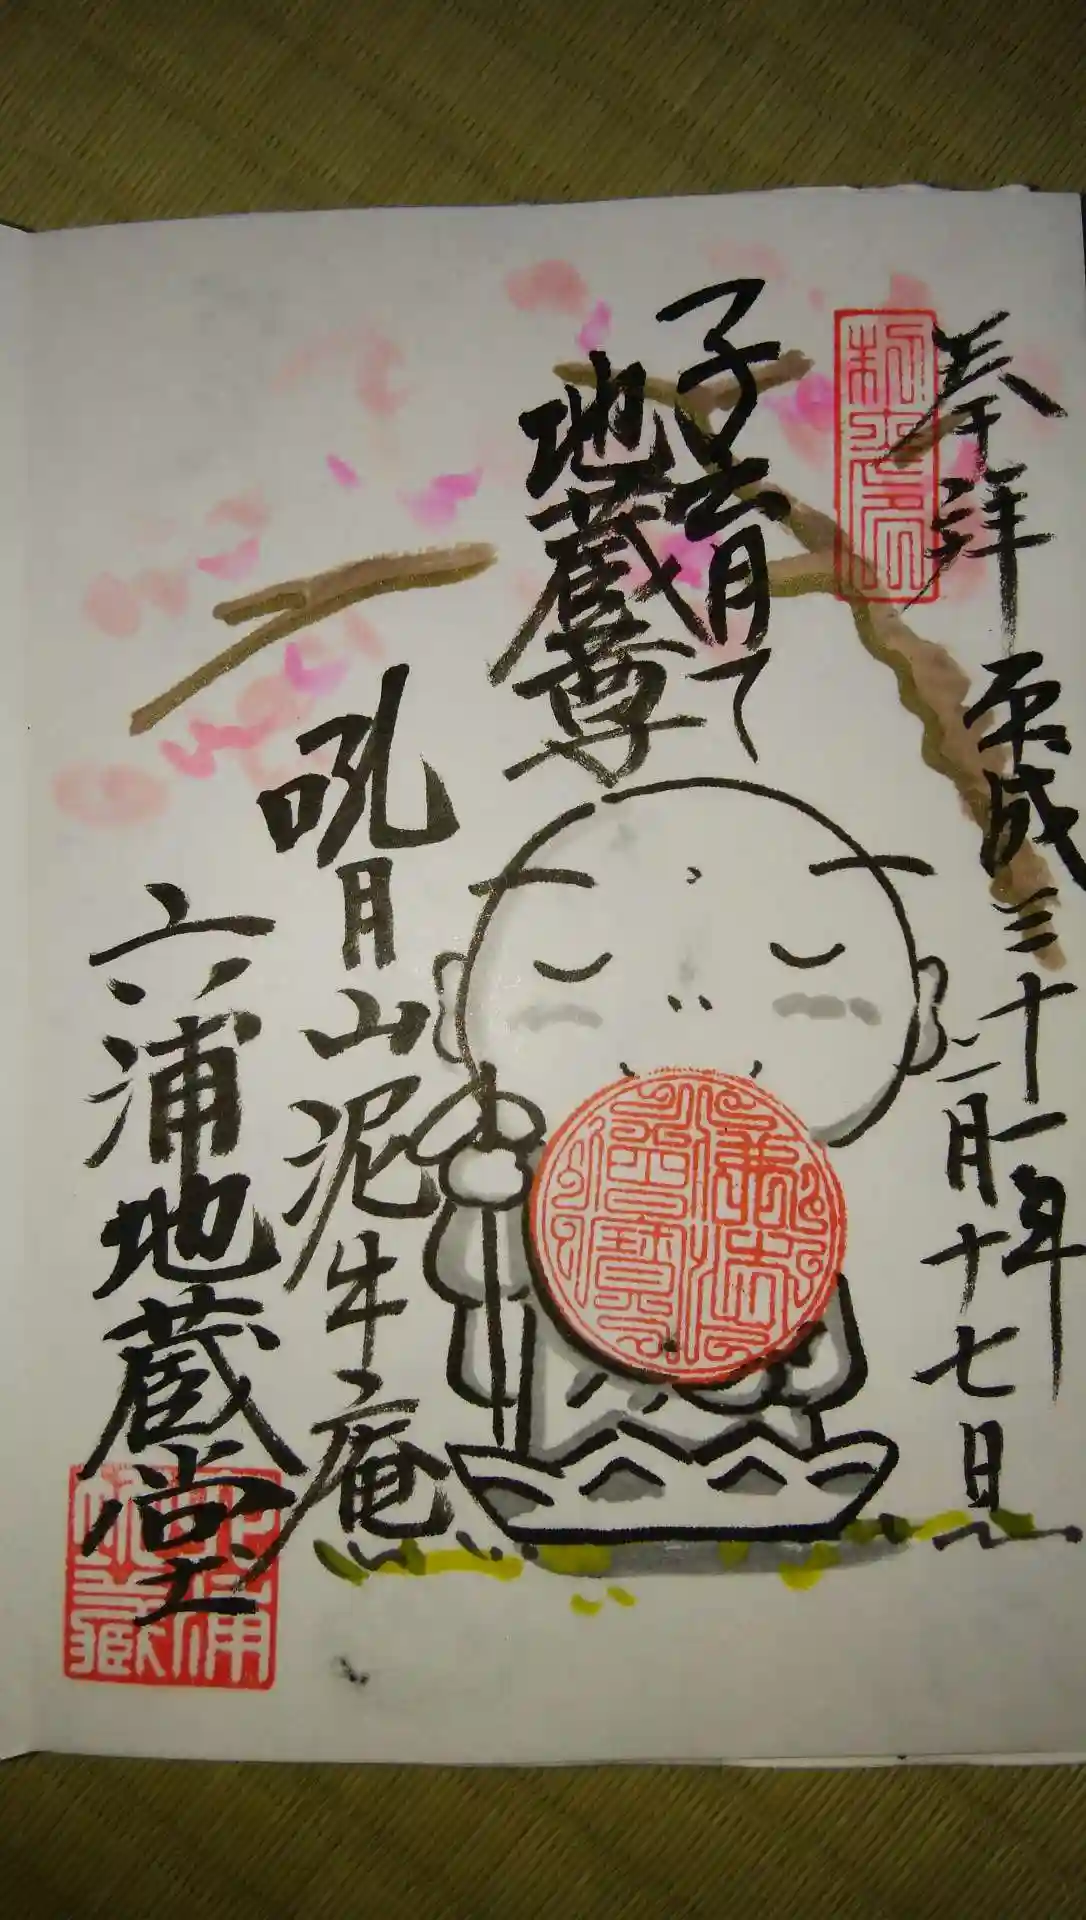 奉拝
平成三十一年
二月十七日
子育て
地蔵尊
吼月山泥牛庵
六浦地蔵堂
佛法僧寶